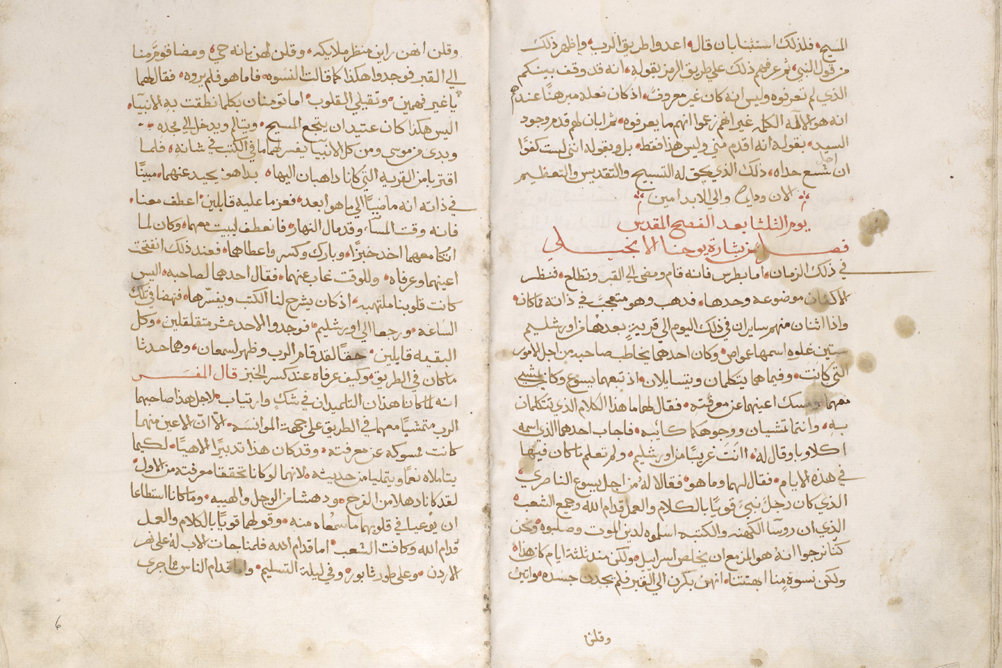 المسيح فلذلك استثنا بان قال اعدوا طريق الرب واظهر ذلك
من قول النبي ثم عرفهم ذلك على طريق الرمز بقوله انه قد وقف بينكم
الذي لم تعرفوه وليس انه كان غير معروف اذ كان نعله مبرهنا عندهم
انه هو الاله الكلمه غير انهم زعموا انهم ما يعرفوه ثم ابان لهم قدم وجود
السيد بقوله انه اقدم مني وليس هذا فقط بل وبقوله انني لست كفوًا
ان احل شسع حداه ذلك الذي يحق له التسبيح والتقديس والتعظيم
الان ودايما والى الابد امين
يوم الثلثا بعد الفصح المقدس
فصل من بشارة يوحنا الانجيلي
في ذلك الزمان اما بطرس فانه قام ومضى الى القبر وتطلع فنظر
الاكفان موضوعة وحدها فذهب وهو متعجب في ذاته مما كان
واذا اثنان منهم سايران في ذلك اليوم الى قرية بعدها من اورشليم
ستين غلوه اسمها عمواص وكان احدهما يخاطب صاحبه من اجل الامور
التي كانت وفيما هما يتكلمان ويتسايلان اذ تبعهما يسوع وكان يمشي
معهما ومسك اعينهما عن معرفته فقال لهما ما هذا الكلام الذي تتكلمان
به وانتما تمشيان ووجوهكما كائبه فاجاب احدهما الذي اسمه
اكلاوبا وقال له اانت غريبًا من اورشليم ولم تعلم ما كان فيها
في هذه الايام فقال لهما وما هو فقالا له من اجل يسوع الناصري
الذي كان رجل نبي قويًا بالكلام والعمل قدام الله وجميع الشعب
الذي ان روسا الكهنه والكتبه اسلموه لدين الموت وصلبوه ونحن
كنا نرجوا انه هو المزمع ان يخلص اسراييل ولكن منذ ثلثة ايام كان هذا
ولكن نسوة منا ابهتتنا انهن بكرن الى القبر فلم يجدن جسده واتين
وقلن
وقلن انهن راين منظر ملايكه وقلن لهن بانه حي ومضا قوم منا
الى القبر فوجدوا هكذا كما قالت النسوه فاما هو فلم يروه فقال لهما
يا غير فهمين وثقيلي القلوب اما تومنان بكلما نطقت به الانبيا
اليس هكذا كان عتيد ان يتجع المسيح ويتالم ويدخل الى مجده
وبدى من موسى ومن كل الانبيا يفسر لهما ما في الكتب في شانه فلما
اقتربا من القرية التي كانا ذاهبان اليها بدا هو يحيد عنهما مبينًا
في ذاته انه ماضيًا الى ما هو ابعد فعزما عليه قايلين اعطف معنا
فانه وقت المسا وقد مال النهار فانعطف ليبت معهما وكان لما
اتكا معهما اخذ خبزًا وبارك وكسر واعطاهما فعند ذلك انفتحت
اعينهما وعرفاه وللوقت غاب عنهما فقال احدهما لصاحبه اليس
كانت قلوبنا ملتهبه اذ كان يشرح لنا الكتب ويفسرها فنهضا في تلك
الساعة ورجعا الى اورشليم فوجدوا الاحد عشر متقلقلين وكل
البقيه قايلين حقًا لقد قام الرب وظهر لسمعان وهما حدثا
ما كان في الطريق وكيف عرفاه عند كسر الخبز قال المفسر
انه لما كانا هذان التلميذان في شك وارتياب لاجل هذا صاحبهما
الرب متمشيًا معهما في الطريق على جهة الموانسة الا ان الاعين منهما
كانت ممسوكة عن معرفته وقد كان هذا تدبيرًا الاهيًا لكيما
يتاملاه نعمًا ويتمليا من حديثه لانهما لو كانا تحققا معرفته من الاول
لقد كانا دهلا من الفرح ودهشا من الوجل والهيبه وما كانا استطاعا
ان يوعيا في قلوبهما ما سمعاه منه وقولهما قويًا بالكلام والعمل
قدام الله وكافت الشعب اما قدام الله فلمناجات الاب له على نهر
الاردن وعلى طور ثابور وفي ليلة التسليم واما قدام الناس فما جرى
6